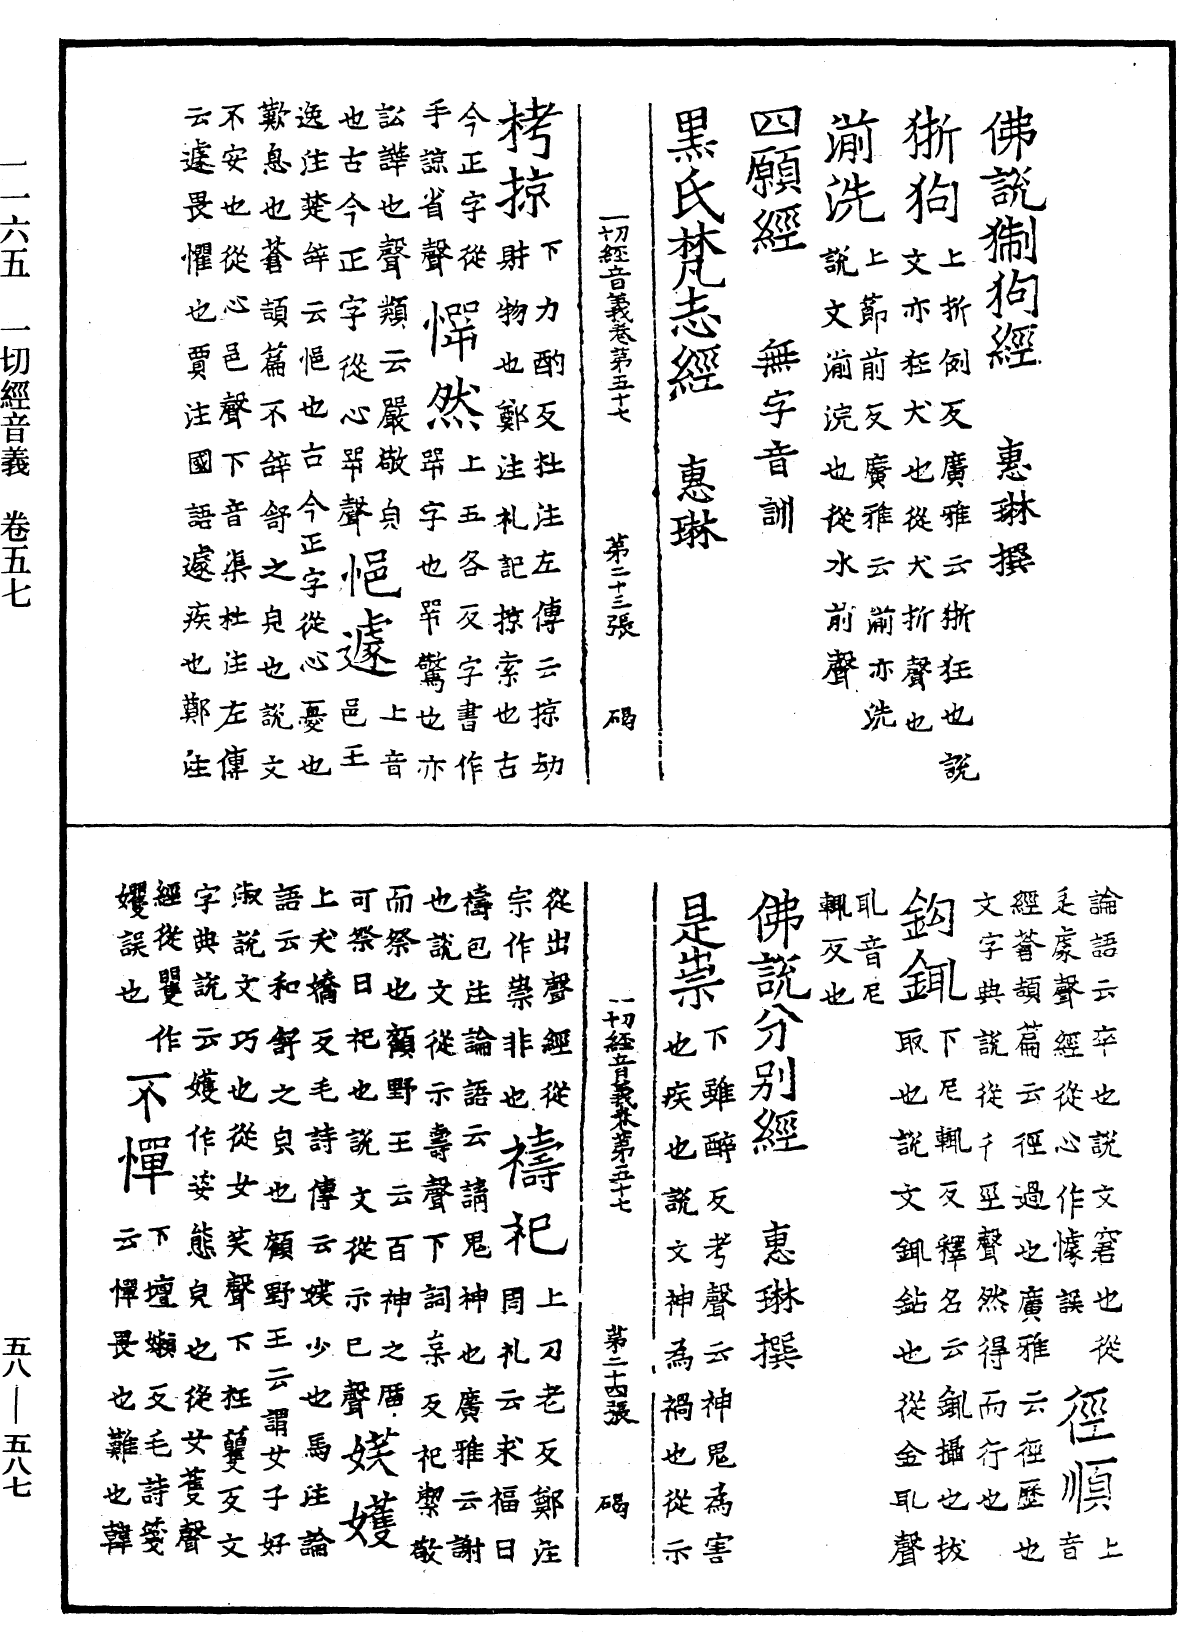 佛說猘狗經　惠琳撰
狾狗上折例反廣雅云狾狂也說
文亦狂犬也從犬折聲也
湔洗上節前反廣雅云湔亦洗
說文湔浣也從水前聲
四願經　無字音訓
黑氏梵志經　惠琳
一切經音義卷第五十七　第二十三張　碣
栲掠下力酌反杜注左傳云掠劫
財物也鄭注礼記掠索也古
今正字從
手諒省聲
㦍然上五各反字書作
咢字也咢驚也亦
訟譁也聲類云嚴敬皃
也古今正字從心咢聲
悒遽上音
邑王
逸注楚辝云悒也古今正字從心憂也
歎息也蒼頡篇不舒之皃也說文
不安也從心邑聲下音渠杜注左傳
云遽畏懼也賈注國語遽疾也鄭注
論語云卒也說文窘也從
辵豦聲經從心作懅誤
徑順上音
經蒼頡篇云徑過也廣雅云徑歷也
文字典說從彳巠聲然得而行也
鈎鉔下尼輒反釋名云鉔攝也拔
取也說文鉔鉆也從金耴聲
耴音尼
輒反也
佛說分別經　惠琳撰
是祟下雖醉反考聲云神鬼為害
也疾也說文神為禍也從示
一切經音義卷第五十七　第二十四張　碣
從出聲經從
宗作崇非也
禱祀上刀老反鄭注
周礼云求福曰
禱包注論語云請鬼神也廣雅云謝
也說文從示壽聲下詞字反祀潔敬
而祭也顧野王云百神之廟
可祭曰祀也說文從示巳聲
媄嬳
上夭嬌反毛詩傳云媄少也馬注論
語云和舒之皃也顧野王云謂女子好
淑說文巧也從女笑聲下狂籰反文
字典說云嬳作姿態皃也從女蒦聲
經從矍作
孆誤也
不憚下壇嬾反毛詩箋
云憚畏也難也韓
一一六五　一切經音義　卷五七
五八—五八七